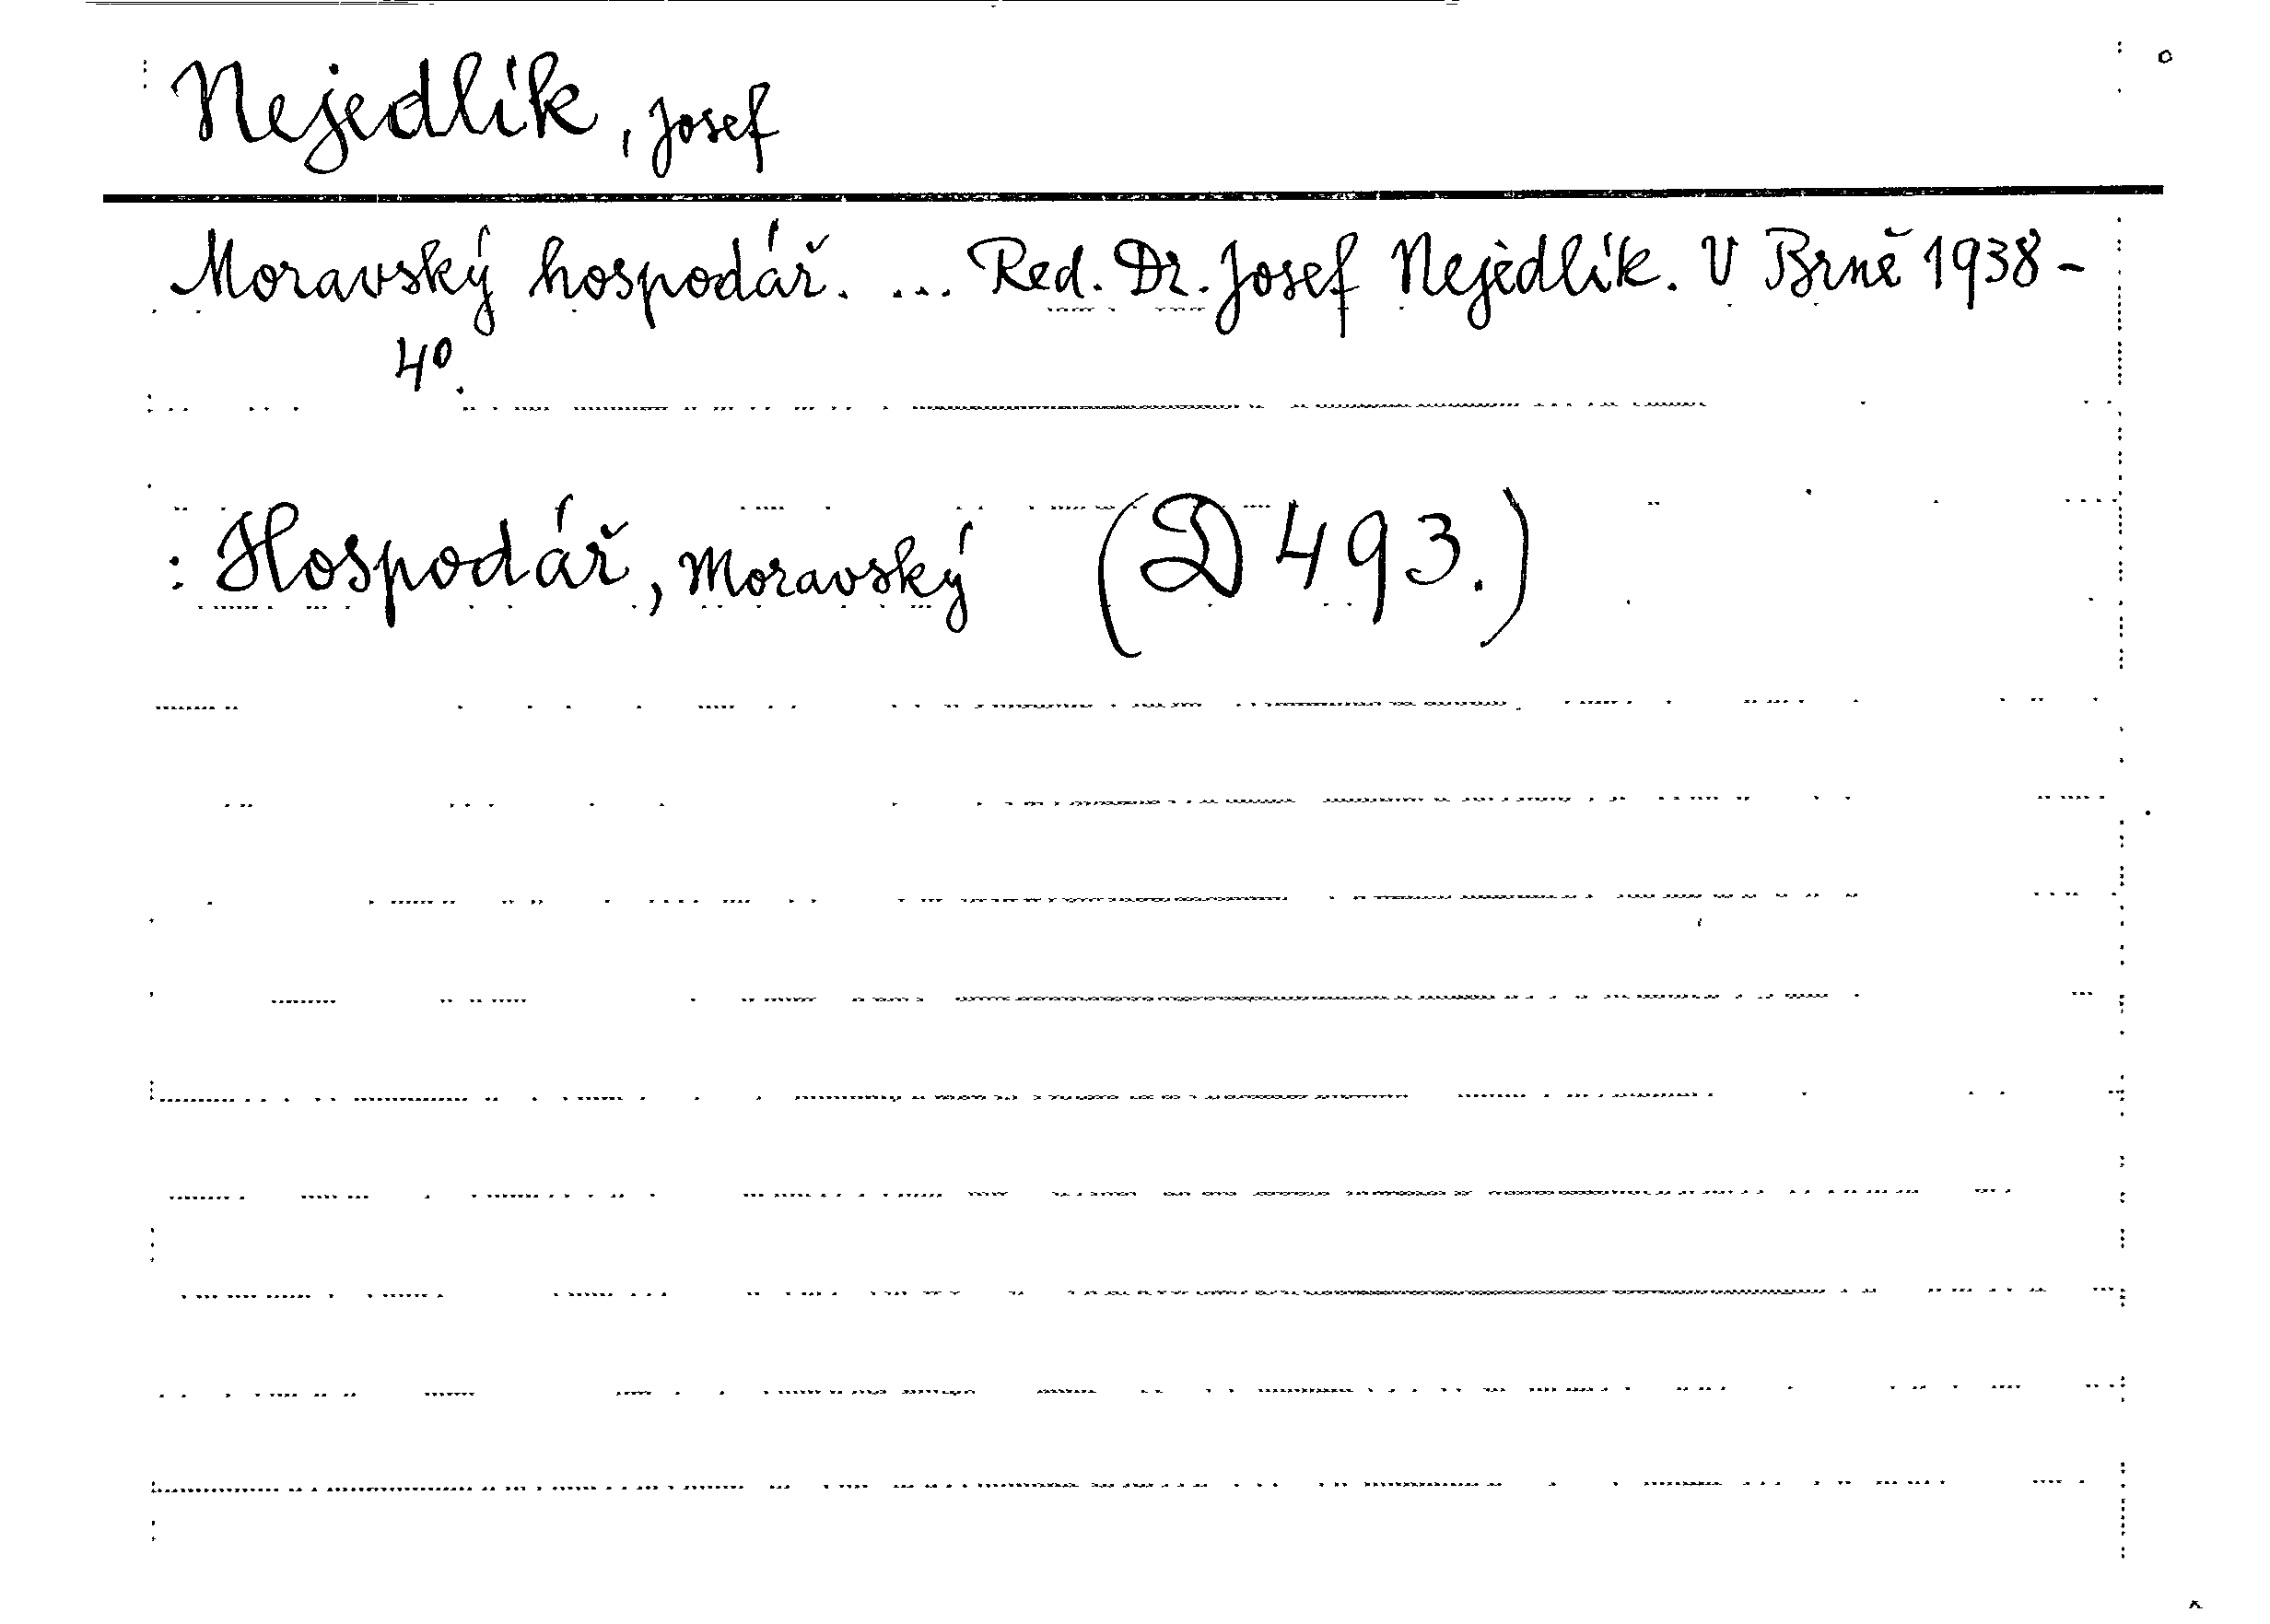 Nejedlík, Josef
Moravský hospodář. ... Red. Dr. Josef Nejedlík. V Brně 1938-
4°.
: Hospodář, Moravský (D 493.)